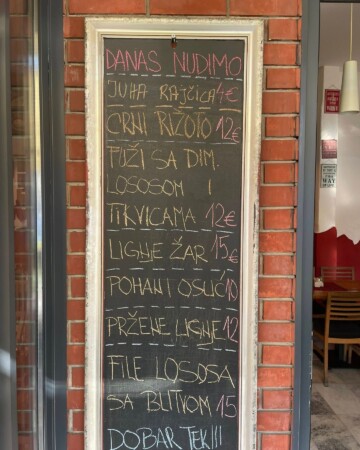 DANAS NUDIMO
JUHA RAJČICA 4€
CRNI RIŽOTO 12€
FUŽI SA DIM.
LOSOSOM I
TIKVICAMA 12€
LIGNJE ŽAR 15€
POHANI OSLIĆ 10
PRŽENE LIGNJE 12
FILE LOSOSA
SA BLITVOM 15
DOBAR TEK!!!
WAY